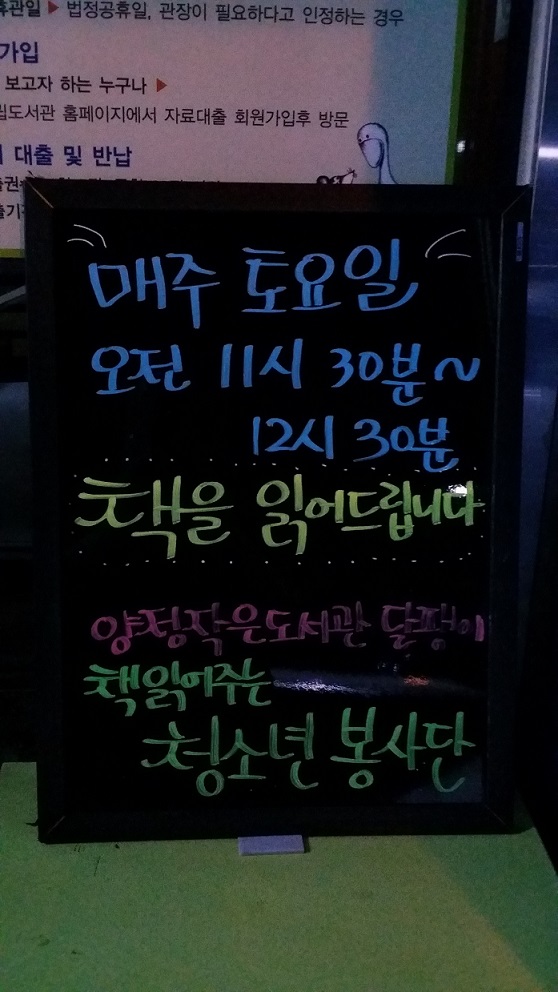 휴관일 ▶ 법정공휴일, 관장이 필요하다고 인정하는 경우
가입
보고자 하는 누구나 ▶
립도서관 홈페이지에서 자료대출 회원가입후 방문
대출 및 반납
매주 토요일
오전 11시 30분~
12시 30분
책을 읽어드립니다
양정작은도서관 달팽이
책읽어주는
청소년 봉사단